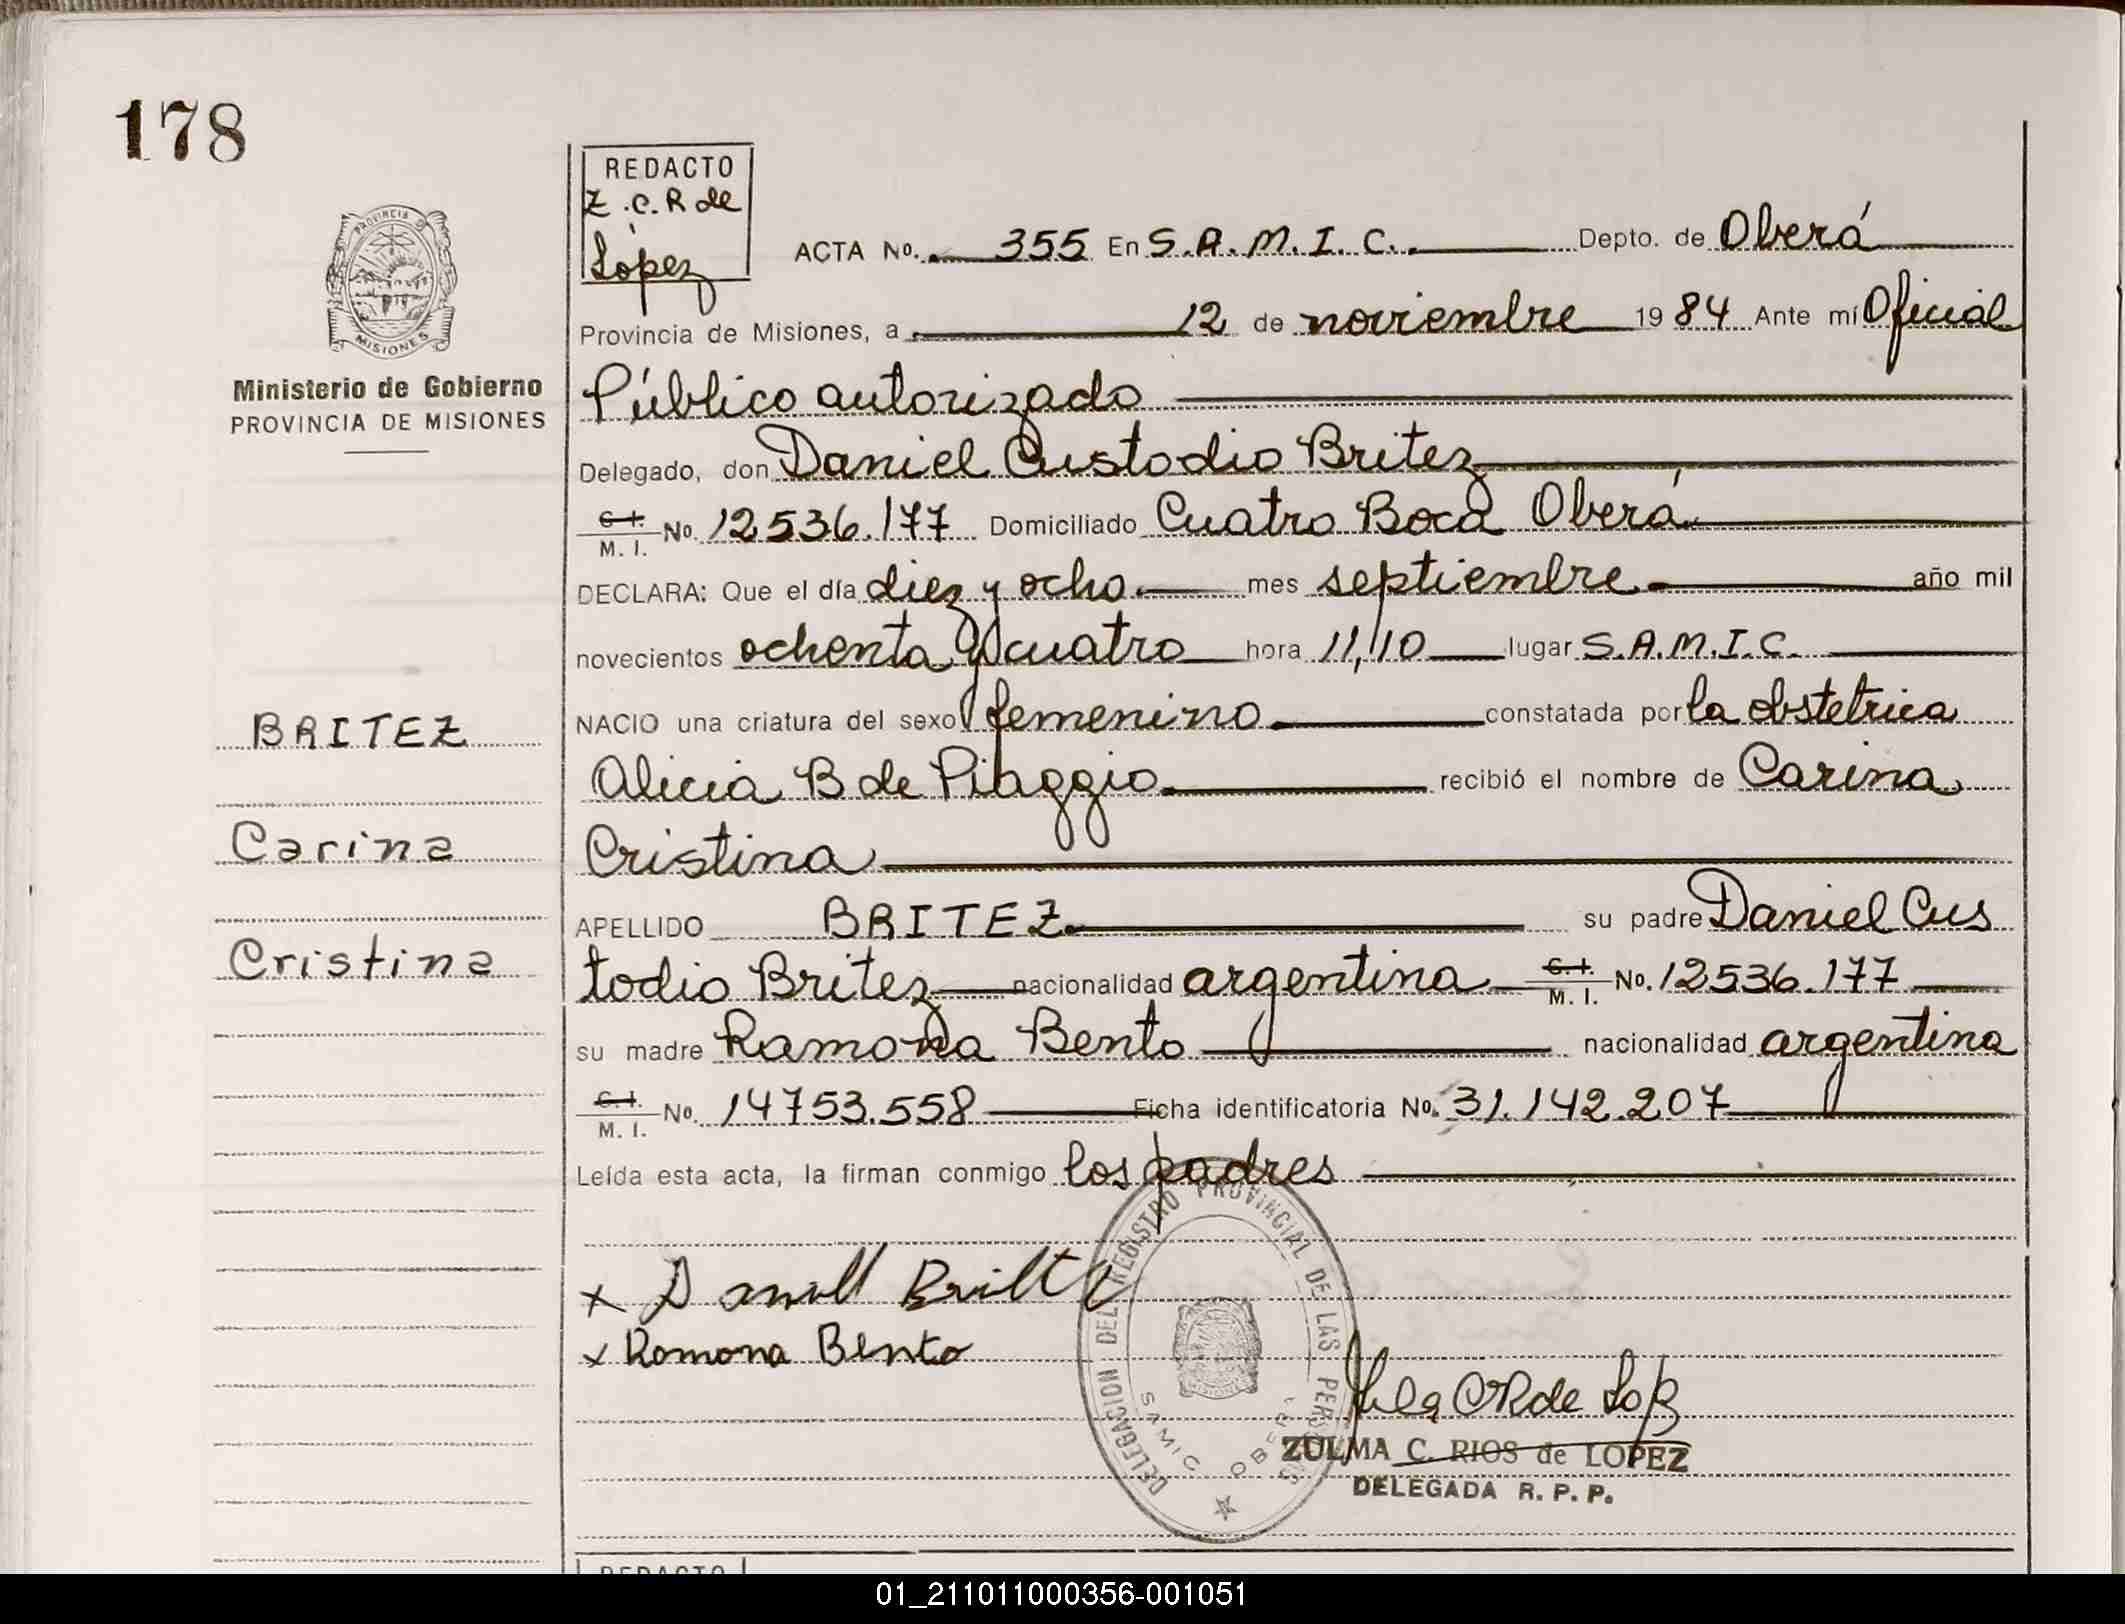 178
REDACTO
Z.C.R de
López
PROVINCIA DE
MISIONES
Ministerio de Gobierno
PROVINCIA DE MISIONES
ACTA No. 355 En S.A.M.I.C. Depto. de Oberá
Provincia de Misiones, a 12 de noviembre 1984 Ante mí Oficial
Público autorizado
Delegado, don Daniel Custodio Britez
C.I. M.I. No. 12536.177 Domiciliado Cuatro Boca Oberá
DECLARA: Que el día diez y ocho mes septiembre año mil
novecientos ochenta y cuatro hora 11,10 lugar S.A.M.I.C.
NACIO una criatura del sexo femenino constatada por la obstetrica
Alicia B de Piaggio recibió el nombre de Carina
Cristina
APELLIDO BRITEZ su padre Daniel Cus
todio Britez nacionalidad argentina C.I. M.I. No. 12536.177
su madre Ramona Bento nacionalidad argentina
C.I. M.I. No. 14753.558 Ficha identificatoria No. 31.142.207
Leída esta acta, la firman conmigo los padres
BRITEZ
Carina
Cristina
x Daniel Britez
x Ramona Bento
DELEGACION DEL REGISTRO PROVINCIAL DE LAS PERSONAS
SAMIC OBERA
ZULMA C. RIOS de LOPEZ
DELEGADA R. P. P.
REDACTO
01_211011000356-001051